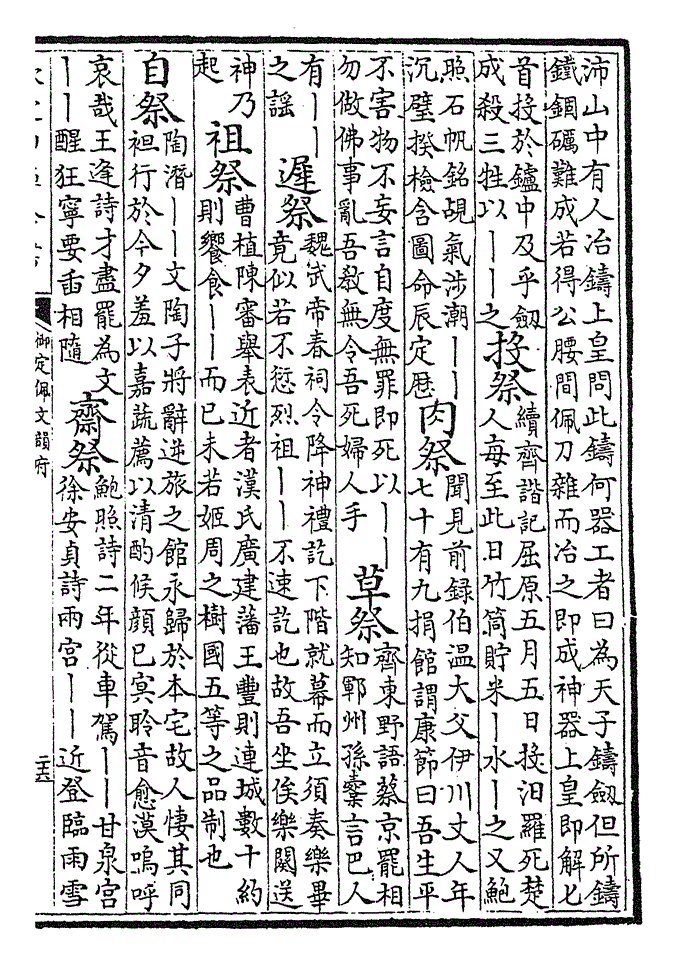 沛山中有人冶鑄上皇問此鑄何器工者曰為天子鑄劔但所鑄
鐵錮礪難成若得公腰間佩刀雜而冶之即成神器上皇即解匕
首投於鑪中及乎劔
成殺三牲以丨丨之
投祭
續齊諧記屈原五月五日投汨羅死楚
人每至此日竹筒貯米丨水丨之又鮑
照石帆銘覘氣涉潮丨丨
沉璧揆檢含圖命辰定歴
肉祭
聞見前録伯溫大父伊川丈人年
七十有九捐館謂康節曰吾生平
不害物不妄言自度無罪即死以丨丨
勿做佛事亂吾敎無令吾死婦人手
草祭
齊東野語蔡京罷相
知鄆州孫鼛言巴人
有丨丨
之謡
遲祭
魏武帝春祠令降神禮訖下階就幕而立須奏樂畢
竟似若不愆烈祖丨丨不速訖也故吾坐俟樂闋送
神乃
起
祖祭
曹植陳審舉表近者漢氏廣建藩王豐則連城數十約
則饗食丨丨而已未若姬周之樹國五等之品制也
自祭
陶潛丨丨文陶子將辭逆旅之館永歸於本宅故人悽其同
袒行於今夕羞以嘉蔬薦以清酌候顔已冥聆音愈漠嗚呼
哀哉王逢詩才盡罷為文
丨丨醒狂寧要臿相隨
齋祭
鮑照詩二年從車駕丨丨甘泉宮
徐安貞詩兩宮丨丨近登臨雨雪
御定佩文韻府